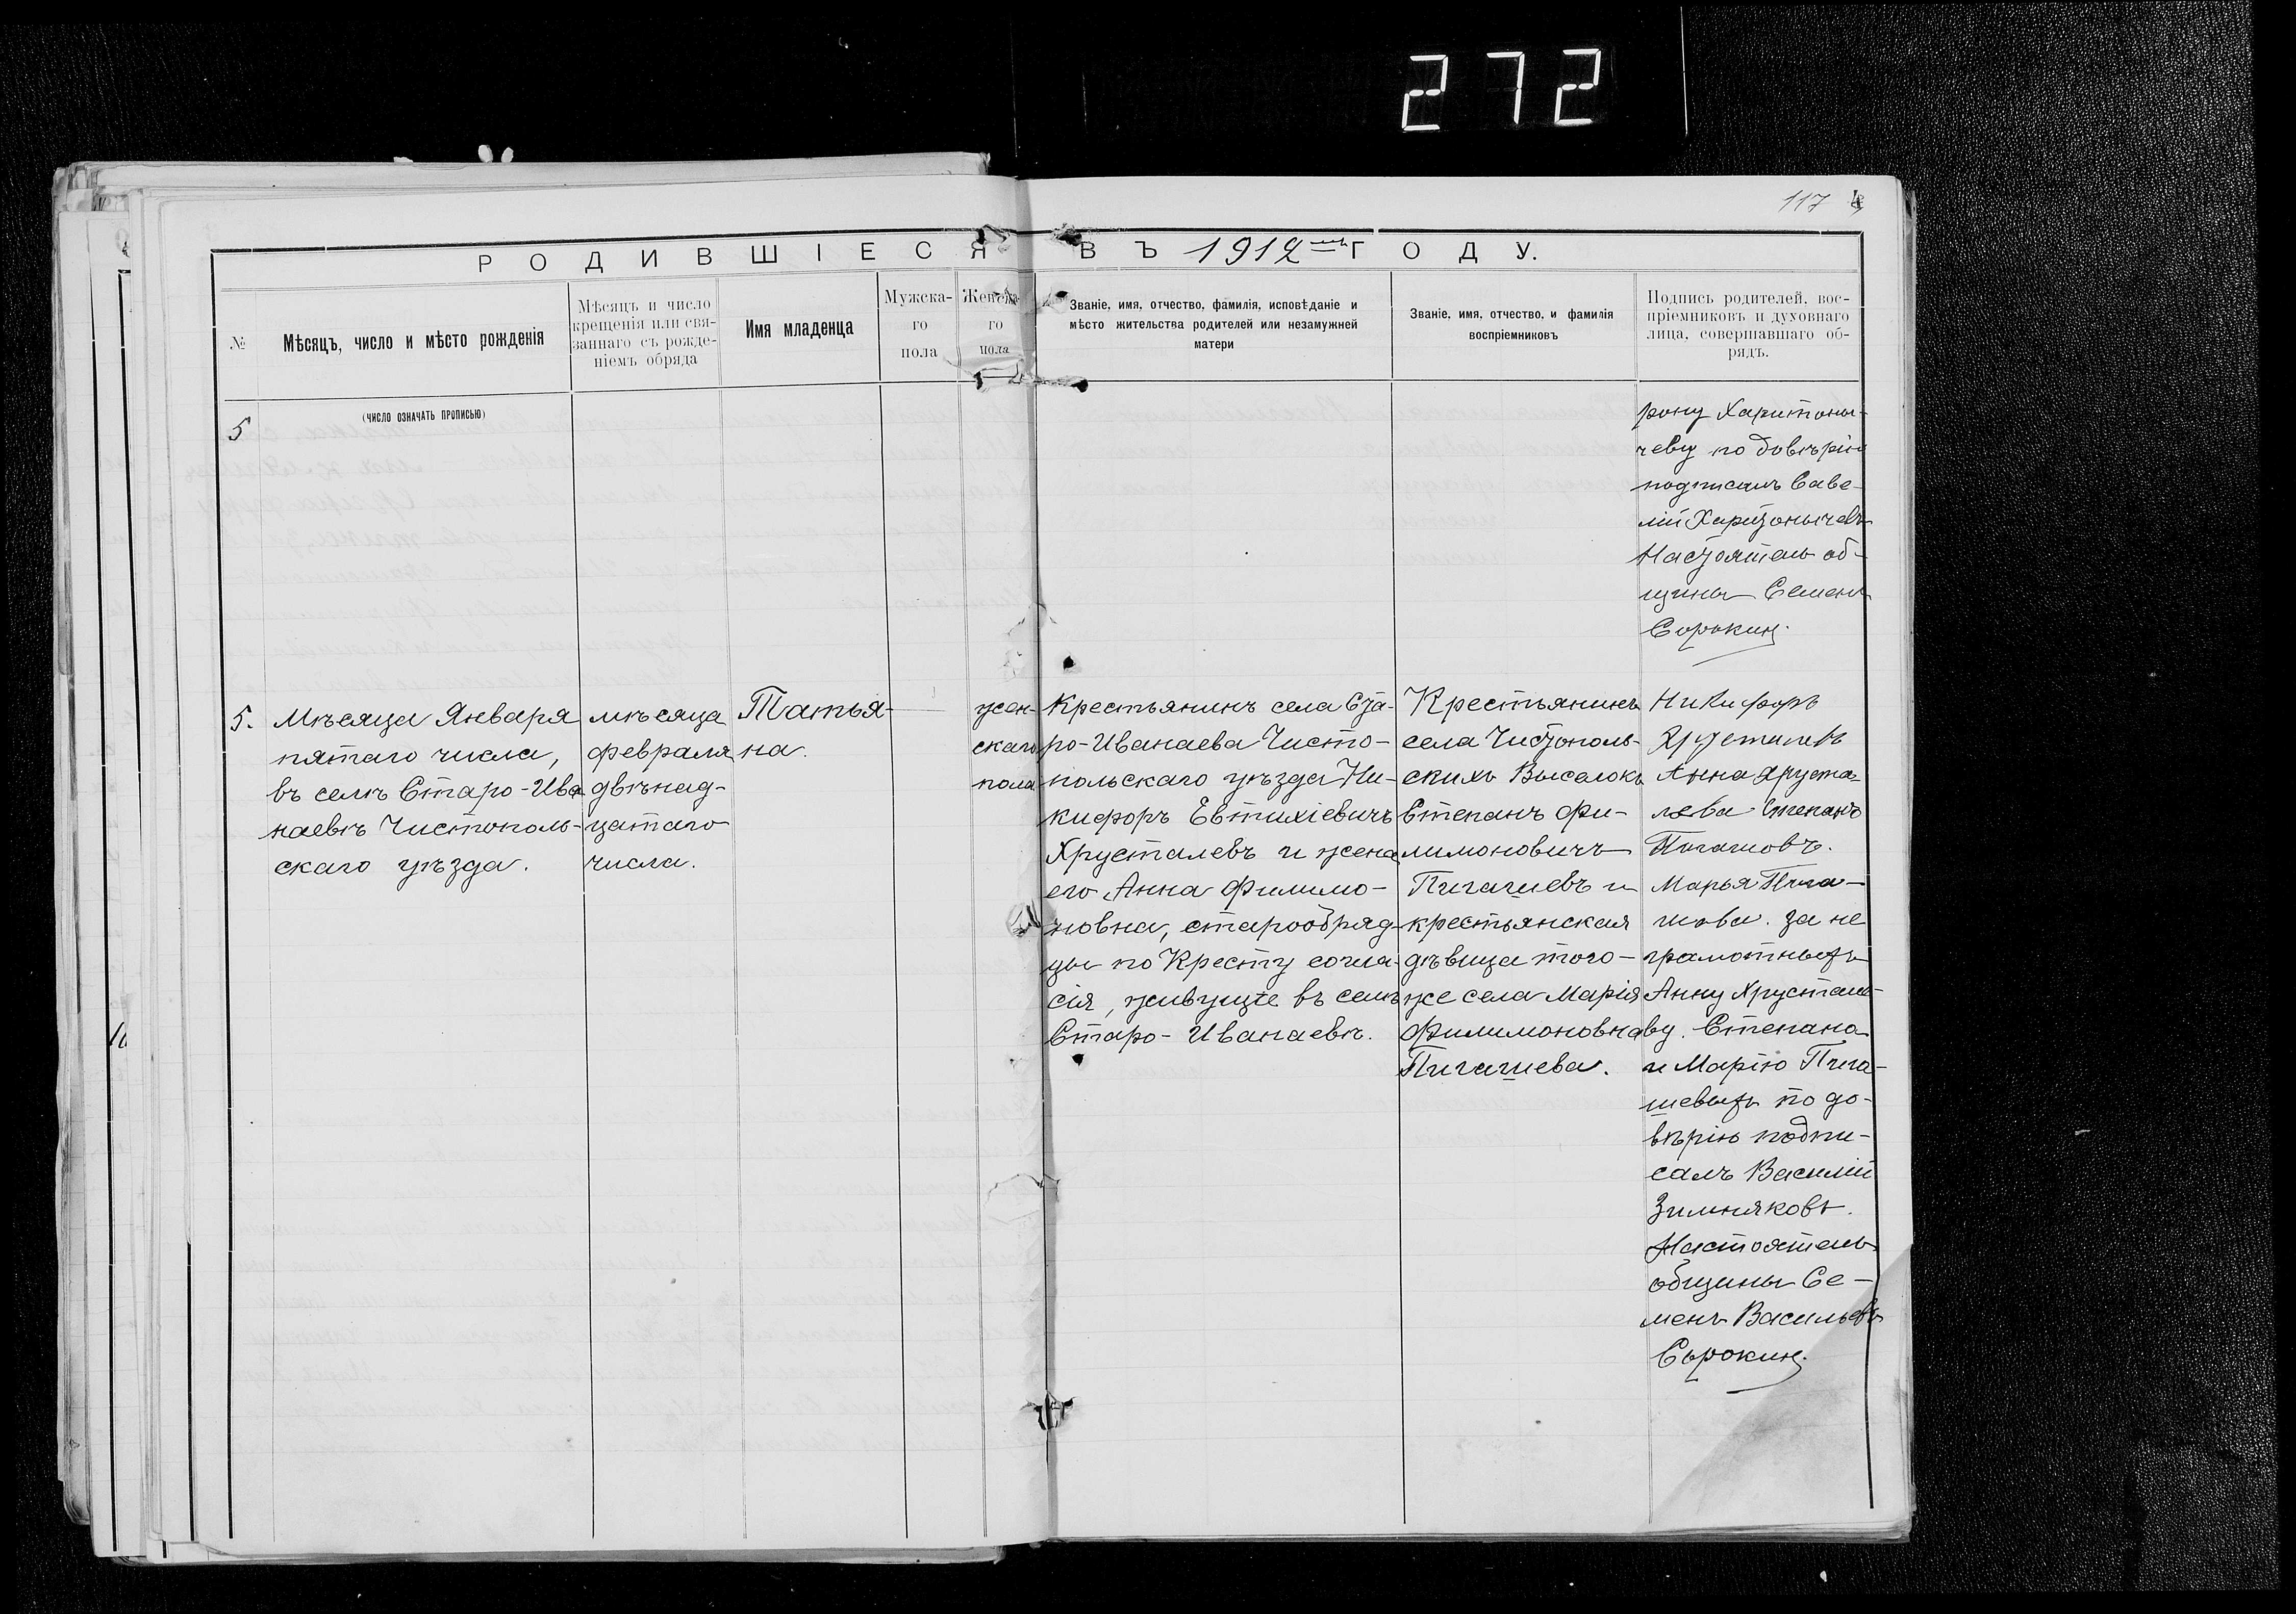 272
117 4
РОДИВШІЕСЯ ВЪ 1912мъ ГОДУ.
№
Мѣсяцъ, число и мѣсто рожденія
Мѣсяцъ и число
крещенія или свя-
заннаго съ рожде-
ніемъ обряда
Имя младенца
Мужска-
го
пола
Женска-
го
пола
Званіе, имя, отчество, фамилія, исповѣданіе и
мѣсто жительства родителей или незамужней
матери
Званіе, имя, отчество, и фамилія
воспріемниковъ
Подпись родителей, вос-
пріемниковъ и духовнаго
лица, совершавшаго об-
рядъ.
(ЧИСЛО ОЗНАЧАТЬ ПРОПИСЬЮ)
5
рону Харитоны-
чеву по довѣрію
подписалъ Саве-
лій Харитонычевъ
Настоятель об-
щины Семенъ
Сорокин.
5.
Мѣсяца Января
пятаго числа,
въ селѣ Старо-Ива
наевѣ Чистополь-
скаго уѣзда.
мѣсяца
февраля
двѣнад-
цатаго
числа.
Татья-
на.
жен-
скаго
пола
Крестьянинъ села Ста-
ро-Иванаева Чисто-
польскаго уѣзда Ни-
кифоръ Евтихіевичъ
Хрусталевъ и жена
его Анна Филимо-
новна, старообряд-
цы по Кресту согла-
сія, живущіе въ селѣ
Старо-Иванаевѣ.
Крестьянинъ
села Чистополь-
скихъ Выселокъ
Степанъ Фи-
лимоновичъ
Пигашевъ и
крестьянская
дѣвица того-
же села Марія
Филимоновна
Пигашева.
Никифоръ
Хрусталевъ
Анна Хруста-
лева Степанъ
Пигашовъ.
Марья Пига-
шова. за не
грамотныхъ
Анну Хрустале-
ву. Степана
и Марію Пига-
шевыхъ по до-
вѣрію подпи-
салъ Василій
Зимняковъ.
Настоятель
общины Се-
менъ Васильевъ
Сорокин.